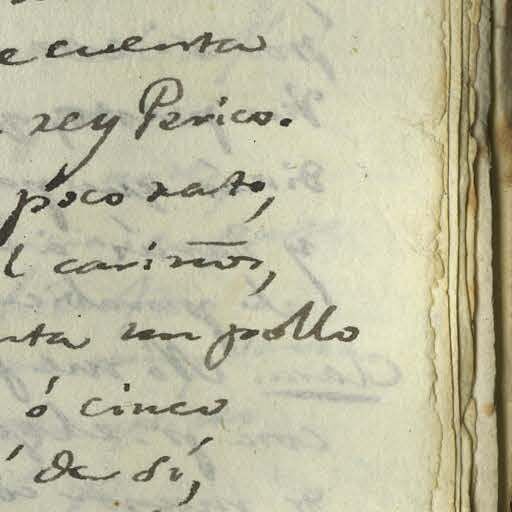 e cuenta
rey Perico.
poco rato,
l cariños,
nta un pollo
ó cinco
de sí,